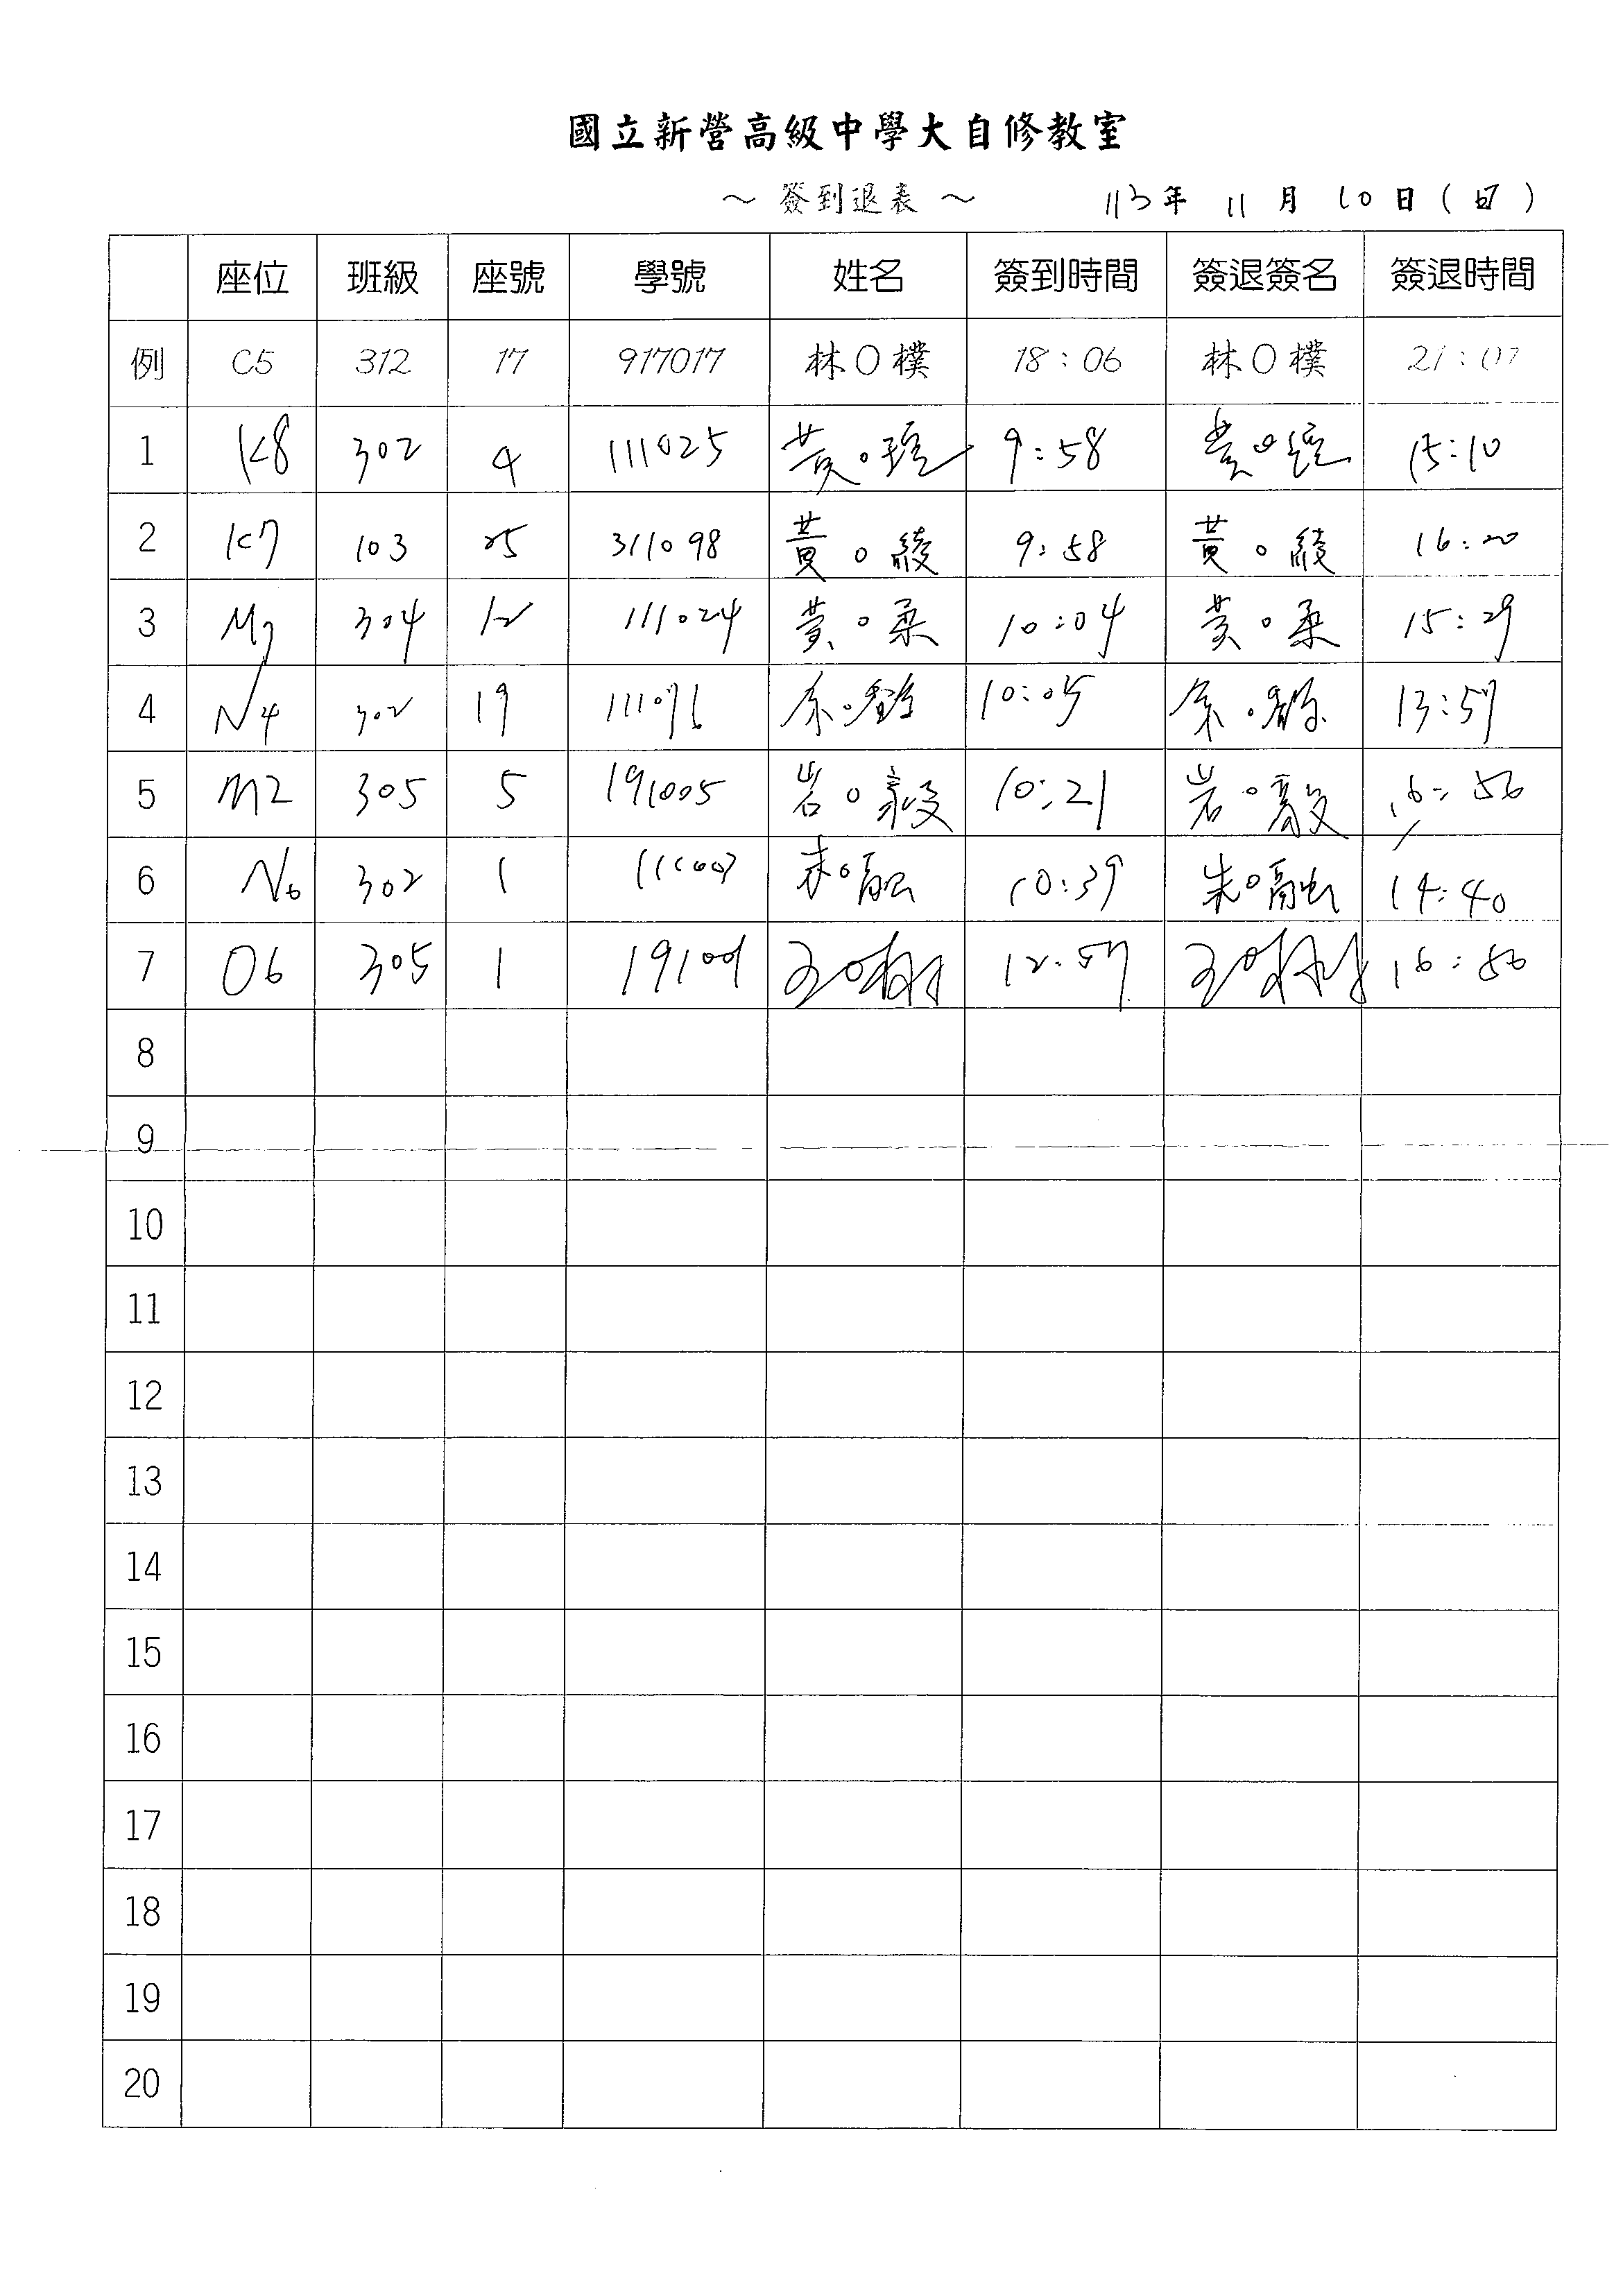 國立新營高級中學大自修教室
～ 簽到退表 ～ 113年 11月 10日(日)
座位 班級 座號 學號 姓名 簽到時間 簽退簽名 簽退時間
例 C5 312 17 917017 林○樸 18:06 林○樸 21:07
1 K8 302 4 111025 黃○瑄 9:58 黃○瑄 15:10
2 K7 103 25 311098 黃○綾 9:58 黃○綾 16:20
3 304 12 111024 黃○柔 10:04 黃○柔 15:29
4 N4 302 19 111076 10:05 13:57
5 M2 305 5 191005 岩○毅 10:21 岩○毅 16:56
6 N6 302 1 111007 朱○融 10:39 朱○融 14:40
7 O6 305 1 191001 12:57 16:56
8
9
10
11
12
13
14
15
16
17
18
19
20